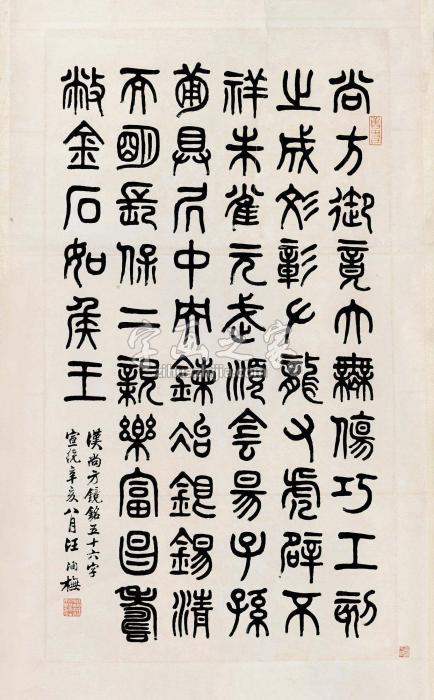 尚方御竟大無傷巧工刻
之成彣彰𠂇龍又虎辟不
祥朱雀元武順侌昜子孫
𤰈具凥中央鍊冶銀錫清
而明長保二親樂富昌壽
敝金石如侯王
漢尚方鏡銘五十六字
宣統辛亥八月汪洵橅